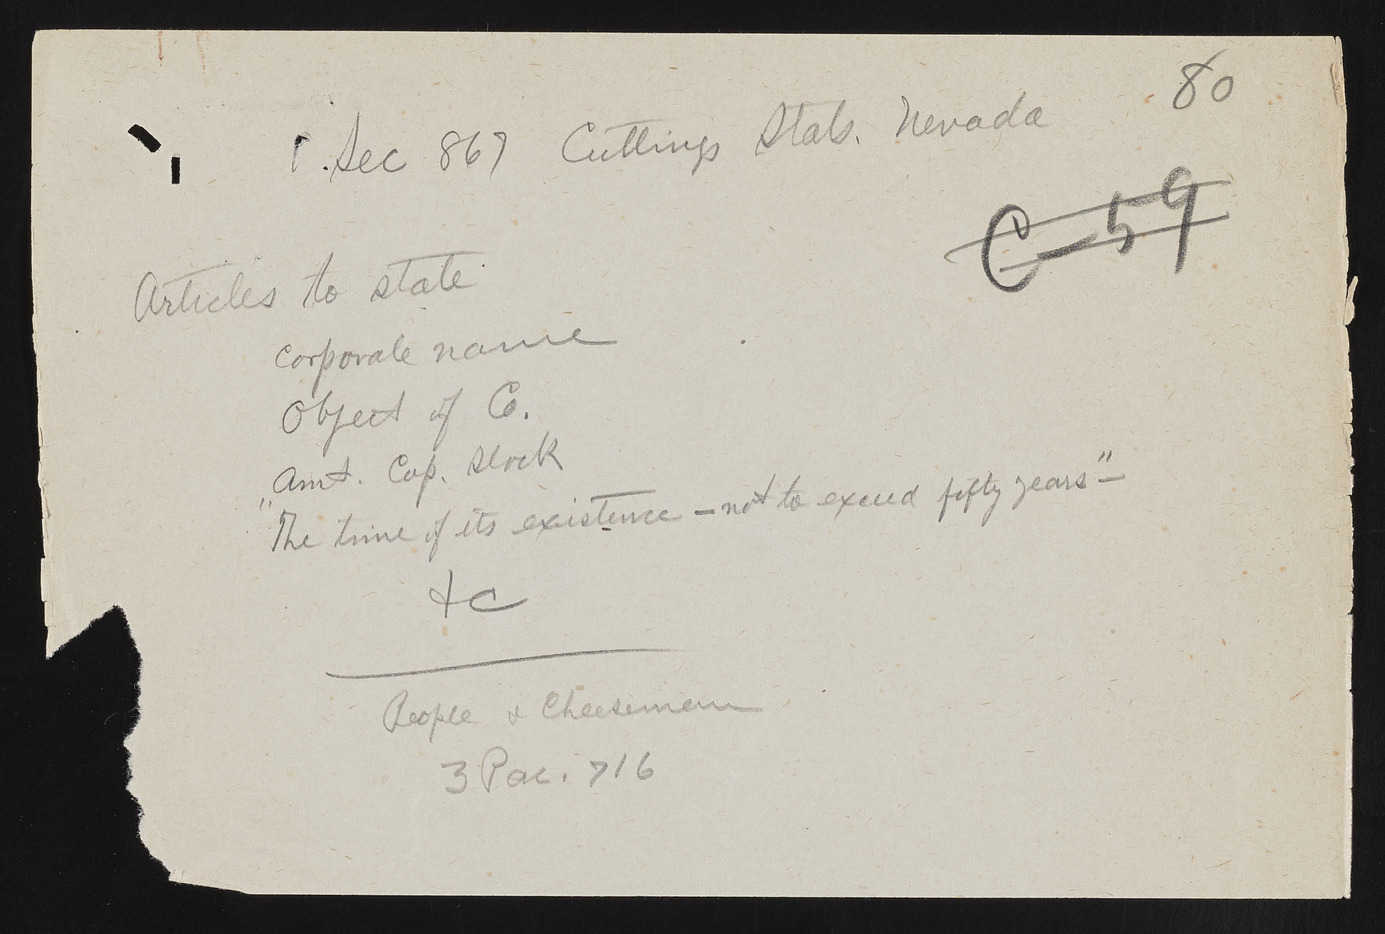 80
Sec 867 Cuttings Stats. Nevada
C-59
Articles to state
corporate name
Object of Co.
Amt. Cap. Stock
"The time of its existence - not to exceed fifty years" -
&c
People v Cheeseman
3 Pac. 716